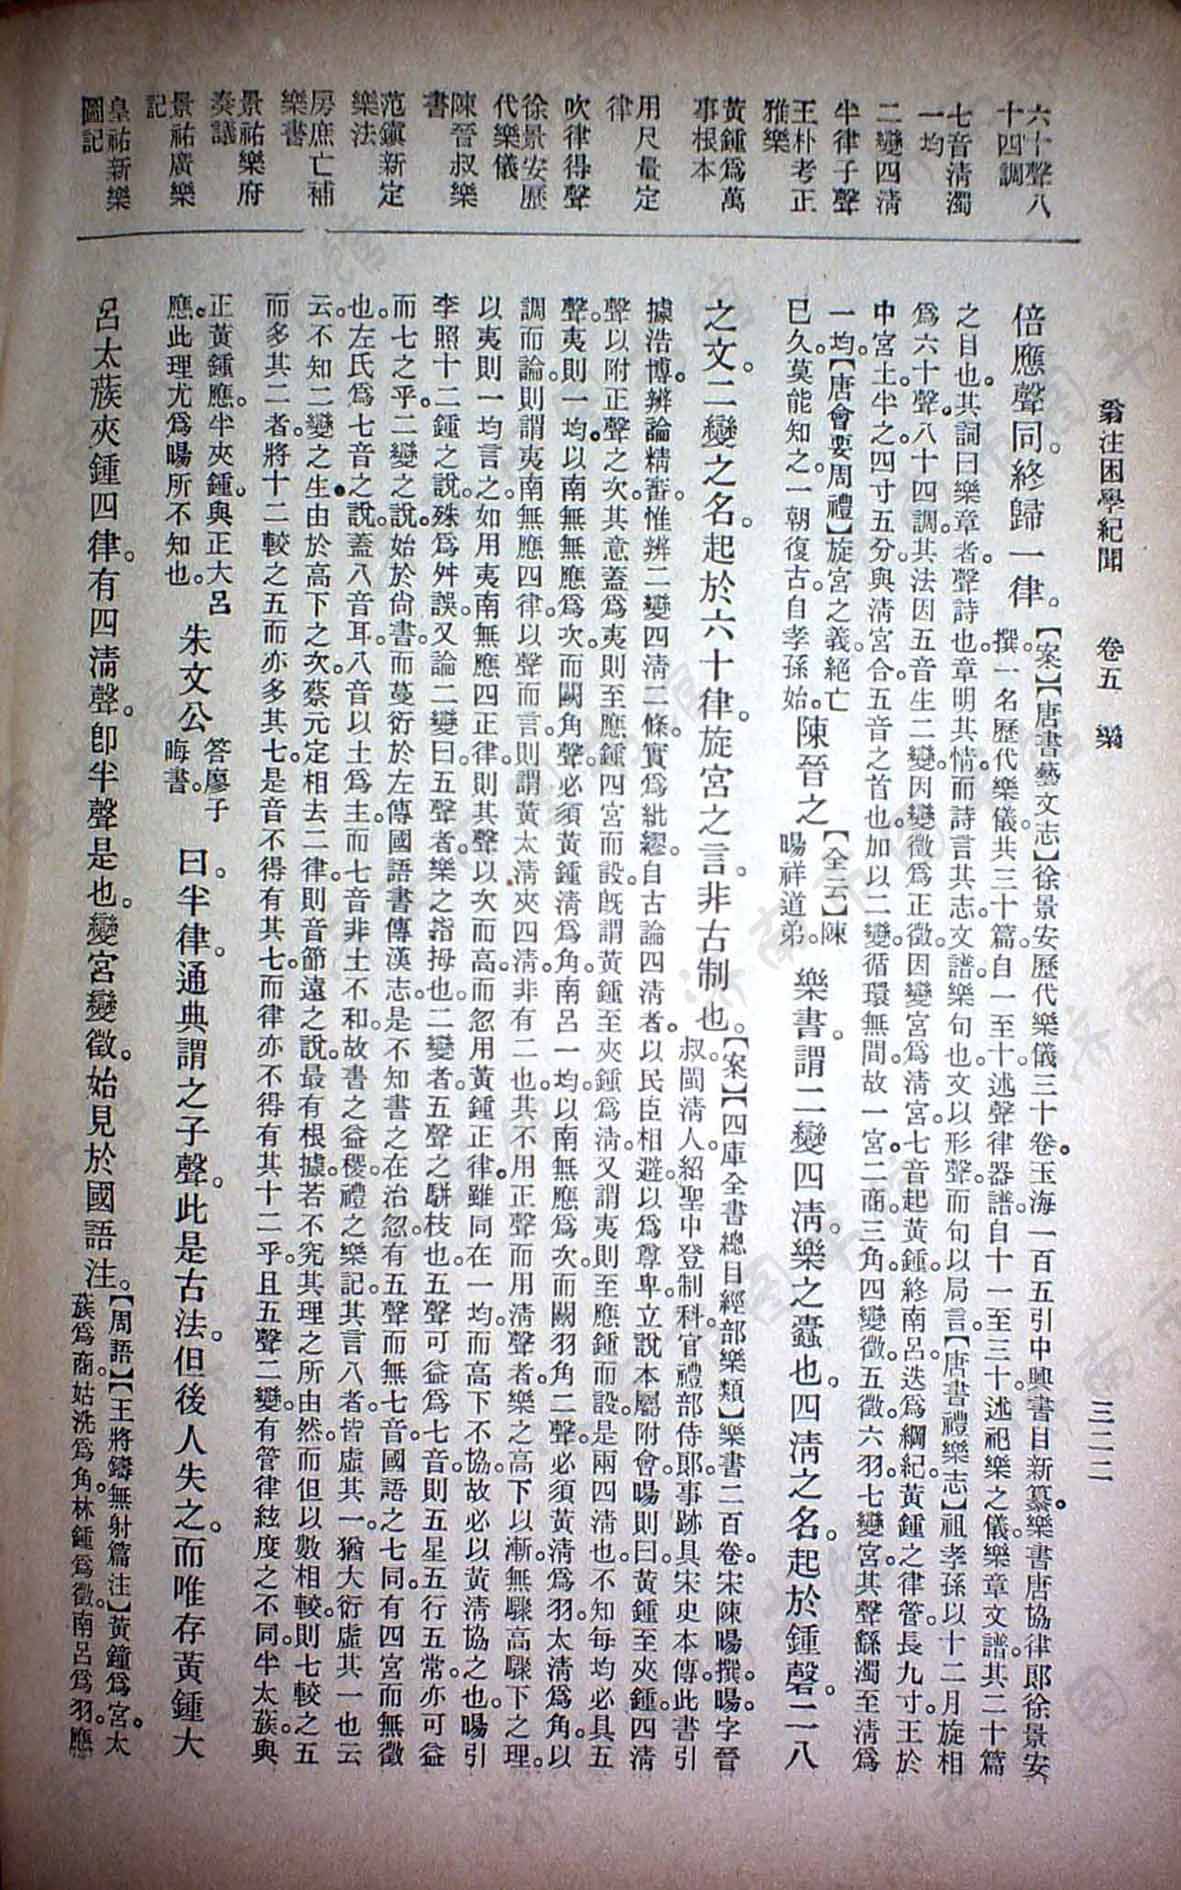 翁注困學紀聞 卷五 樂 三二二
六十聲八
十四調
七音清濁
一均
二變四清
半律子聲
王朴考正
雅樂
黃鍾爲萬
事根本
用尺量定
律
吹律得聲
徐景安歷
代樂儀
陳晉叔樂
書
范鎭新定
樂法
房庶亡補
樂書
景祐樂府
奏議
景祐廣樂
記
皇祐新樂
圖記
倍應聲同。終歸一律。
【案】【唐書藝文志】徐景安歷代樂儀三十卷。玉海一百五引中興書目新纂樂書。唐協律郎徐景安
撰。一名歷代樂儀。共三十篇。自一至十。述聲律器譜。自十一至三十。述祀樂之儀。樂章文譜。其二十篇
之目也。其詞曰。樂章者。聲詩也。章明其情。而詩言其志。文譜樂句也。文以形聲。而句以局言。【唐書禮樂志】祖孝孫以十二月旋相
爲六十聲。八十四調。其法因五音生二變。因變徵爲正徵。因變宮爲清宮。七音起黃鍾。終南呂。迭爲綱紀。黃鍾之律。管長九寸。王於
中宮土。半之。四寸五分。與清宮合。五音之首也。加以二變。循環無間。故一宮。二商。三角。四變徵。五徵。六羽。七變宮。其聲繇濁至清爲
一均。【唐會要周禮】旋宮之義絕亡
已久。莫能知之。一朝復古。自孝孫始。
陳晉之
【全云】陳
暘祥道弟。
樂書。謂二變四淸。樂之蠹也。四淸之名。起於鍾磬二八
之文。二變之名。起於六十律。旋宮之言。非古制也。
【案】【四庫全書總目經部樂類】樂書二百卷。宋陳暘撰。暘字晉
叔。閩清人。紹聖中登制科。官禮部侍郎。事跡具宋史本傳。此書引
據浩博。辨論精審。惟辨二變四清二條。實爲紕繆。自古論四清者。以民臣相避。以爲尊卑。立說本屬附會。暘則曰。黃鍾至夾鍾四清
聲。以附正聲之次。其意蓋爲夷則至應鍾四宮而設。旣謂黃鍾至夾鍾爲清。又謂夷則至應鍾而設。是兩四清也。不知每均必具五
聲。夷則一均。以南無應爲次。而闕角聲。必須黃鍾清爲角。南呂一均。以南無應爲次。而闕羽角二聲。必須黃清爲羽。太清爲角。以
調而論。則謂夷南無應四律。以聲而言。則謂黃太清夾四清。非有二也。其不用正聲而用清聲者。樂之高下以漸。無驟高驟下之理。
以夷則一均言之。如用夷南無應四正律。則其聲以次而高。而忽用黃鍾正律。雖同在一均。而高下不協。故必以黃清協之也。暘引
李照十二鍾之說。殊爲舛誤。又論二變曰。五聲者。樂之指拇也。二變者。五聲之駢枝也。五聲可益爲七音。則五星五行五常。亦可益
而七之乎。二變之說。始於尙書。而蔓衍於左傳國語書傳漢志。是不知書之在治忽。有五聲而無七音。國語之七同。有四宮而無徵
也。左氏爲七音之說。蓋八音耳。八音以土爲主。而七音非土不和。故書之益稷。禮之樂記。其言八者。皆虛其一。猶大衍虛其一也云
云。不知二變之生。由於高下之次。蔡元定相去二律。則音節遠之說。最有根據。若不究其理之所由然。而但以數相較。則七較之五
而多其二者。將十二較之五而亦多其七。是音不得有其七。而律亦不得有其十二乎。且五聲二變。有管律絃度之不同。半太蔟。與
正黃鍾應。半夾鍾。與正大呂
應。此理尤爲暘所不知也。
朱文公
答廖子
晦書。
曰。半律。通典謂之子聲。此是古法。但後人失之。而唯存黃鍾大
呂太蔟夾鍾四律。有四淸聲。卽半聲是也。變宮變徵。始見於國語注。
【周語】【王將鑄無射篇注】黃鐘爲宮。太
蔟爲商。姑洗爲角。林鍾爲徵。南呂爲羽。應